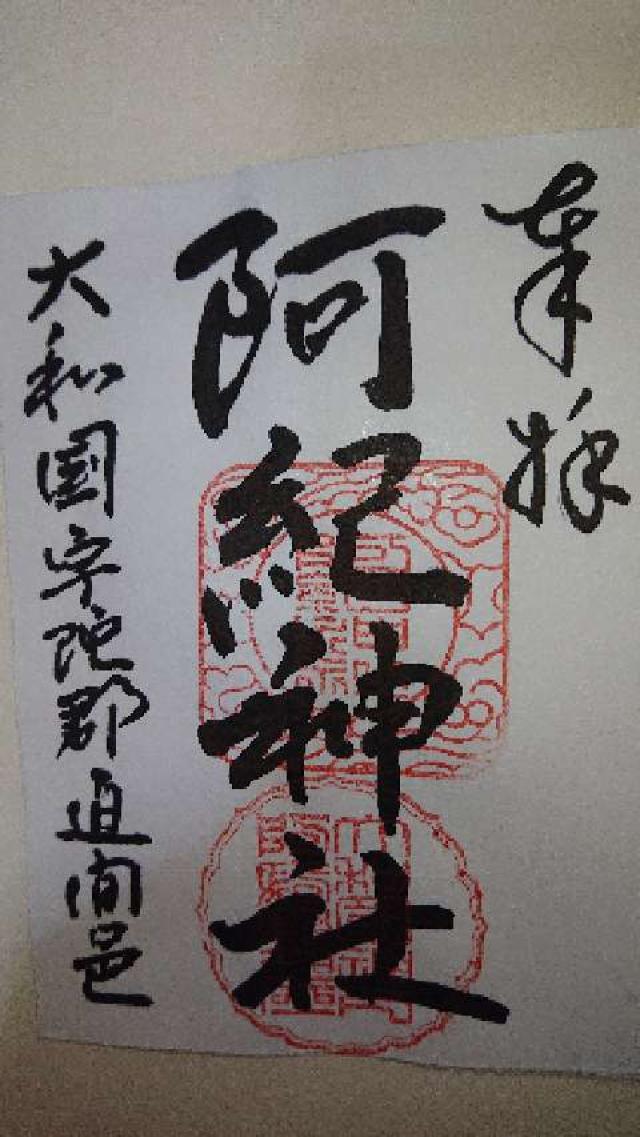 奉拝
阿紀神社
大和國宇陀郡迫間邑